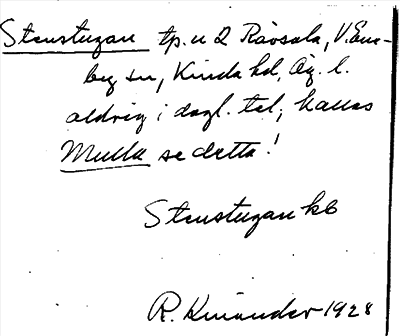 Stenstugan tp. u 2 Råvsala, V. Ene-
by sn, Kinda hd, Ög. l.
aldrig i dagl. tal; kallas
Mulla se detta!
Stenstugan kb
R. Kinander 1928